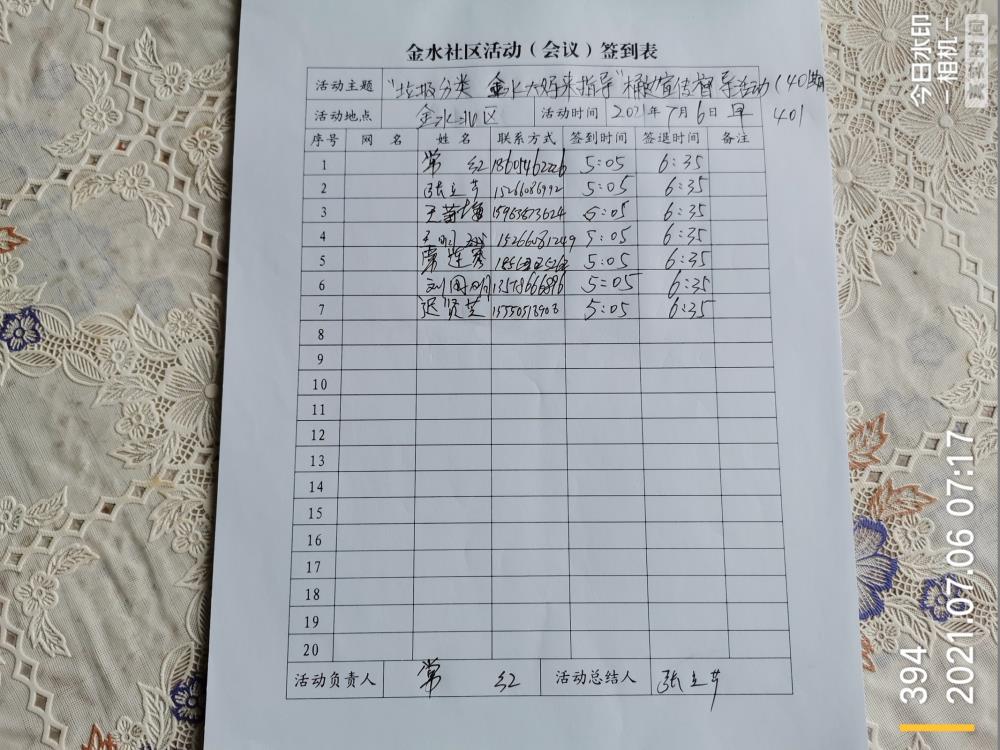 金水社区活动（会议）签到表
活动主题 "垃圾分类 金水大姨来指导"桶前宣传督导活动（40期
活动地点 金水北区 活动时间 2021年7月6日 早 401
序号 网 名 姓 名 联系方式 签到时间 签退时间 备注
1 常 红 18605462226 5:05 6:35
2 张立芹 15266086992 5:05 6:35
3 15963573624 5:05 6:35
4 15266081249 5:05 6:35
5 常莲琴 5:05 6:35
6 刘国明 5:05 6:35
7 迟贤芝 15550518908 5:05 6:35
8
9
10
11
12
13
14
15
16
17
18
19
20
活动负责人 常 红 活动总结人 张立芹
今日水印
-相机-
真实时间
394
2021.07.06 07:17